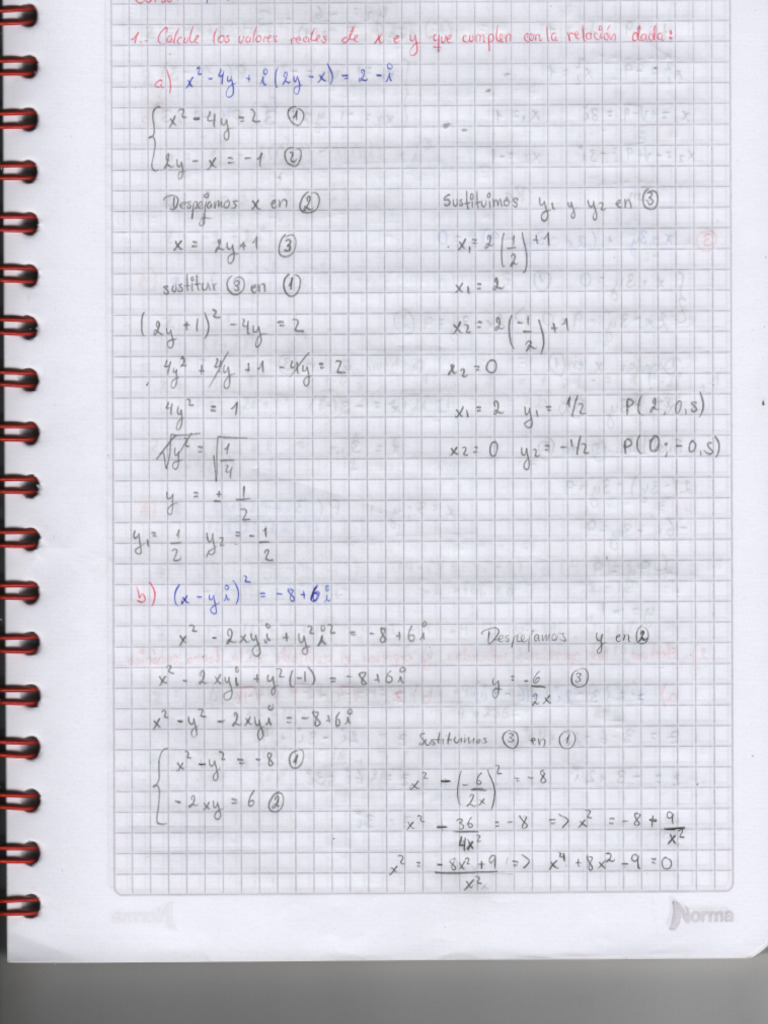 1.- Calcule los valores reales de x e y que cumplen con la relación dada:
a) x² - 4y + i (2y - x) = 2 - i
x² - 4y = 2 ①
2y - x = -1 ②
Despejamos x en ②
x = 2y + 1 ③
sustitur ③ en ①
(2y + 1)² - 4y = 2
4y² + 4y + 1 - 4y = 2
4y² = 1
√y² = √1/4
y = ± 1/2
y₁ = 1/2 y₂ = -1/2
Sustituimos y₁ y y₂ en ③
x₁ = 2 (1/2) + 1
x₁ = 2
x₂ = 2 (-1/2) + 1
x₂ = 0
x₁ = 2 y₁ = 1/2 P(2; 0,5)
x₂ = 0 y₂ = -1/2 P(0; -0,5)
b) (x - yi)² = -8 + 6i
x² - 2xyi + y²i² = -8 + 6i
x² - 2xyi + y²(-1) = -8 + 6i
x² - y² - 2xyi = -8 + 6i
x² - y² = -8 ①
-2xy = 6 ②
Despejamos y en ②
y = -6/2x ③
Sustituimos ③ en ①
x² - (-6/2x)² = -8
x² - 36/4x² = -8 => x² = -8 + 9/x²
x² = -8x² + 9/x² => x⁴ + 8x² - 9 = 0
Norma